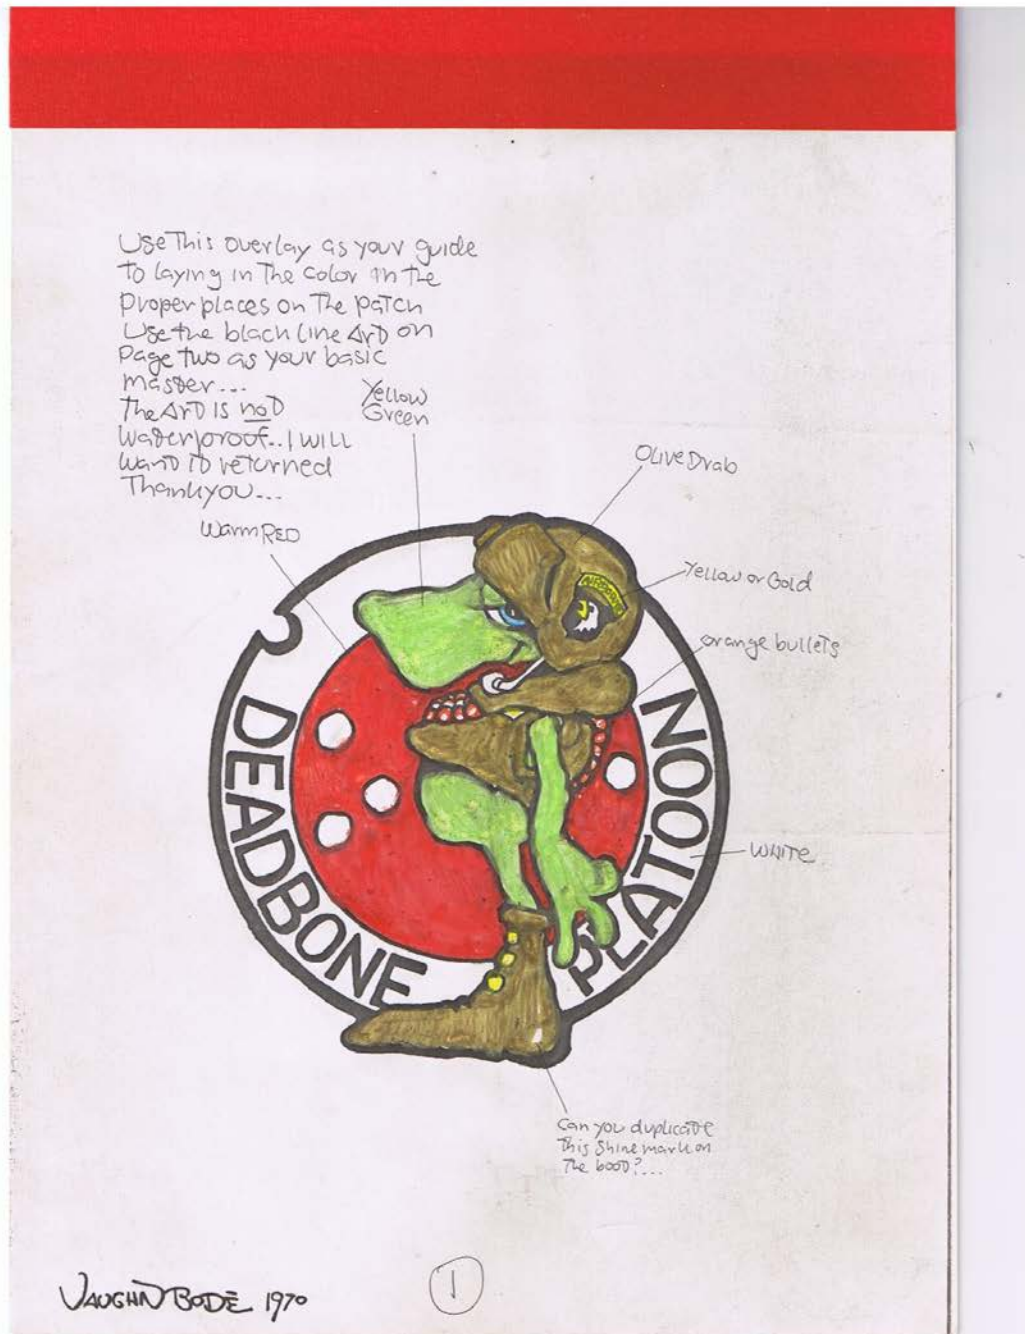 Use This overlay as your guide
to laying in The Color in the
Proper places on The patch
Use the black line ArT on
Page two as your basic
master...
The ArT IS noT
Waterproof.. I WILL
WanT IT returned
Thankyou...
Yellow
Green
Olive Drab
Warm RED
Yellow or Gold
AIRBORNE
orange bullets
DEADBONE
PLATOON
WHITE
Can you duplicate
This Shine mark on
The booT?....
VAUGHN BODĒ 1970
1